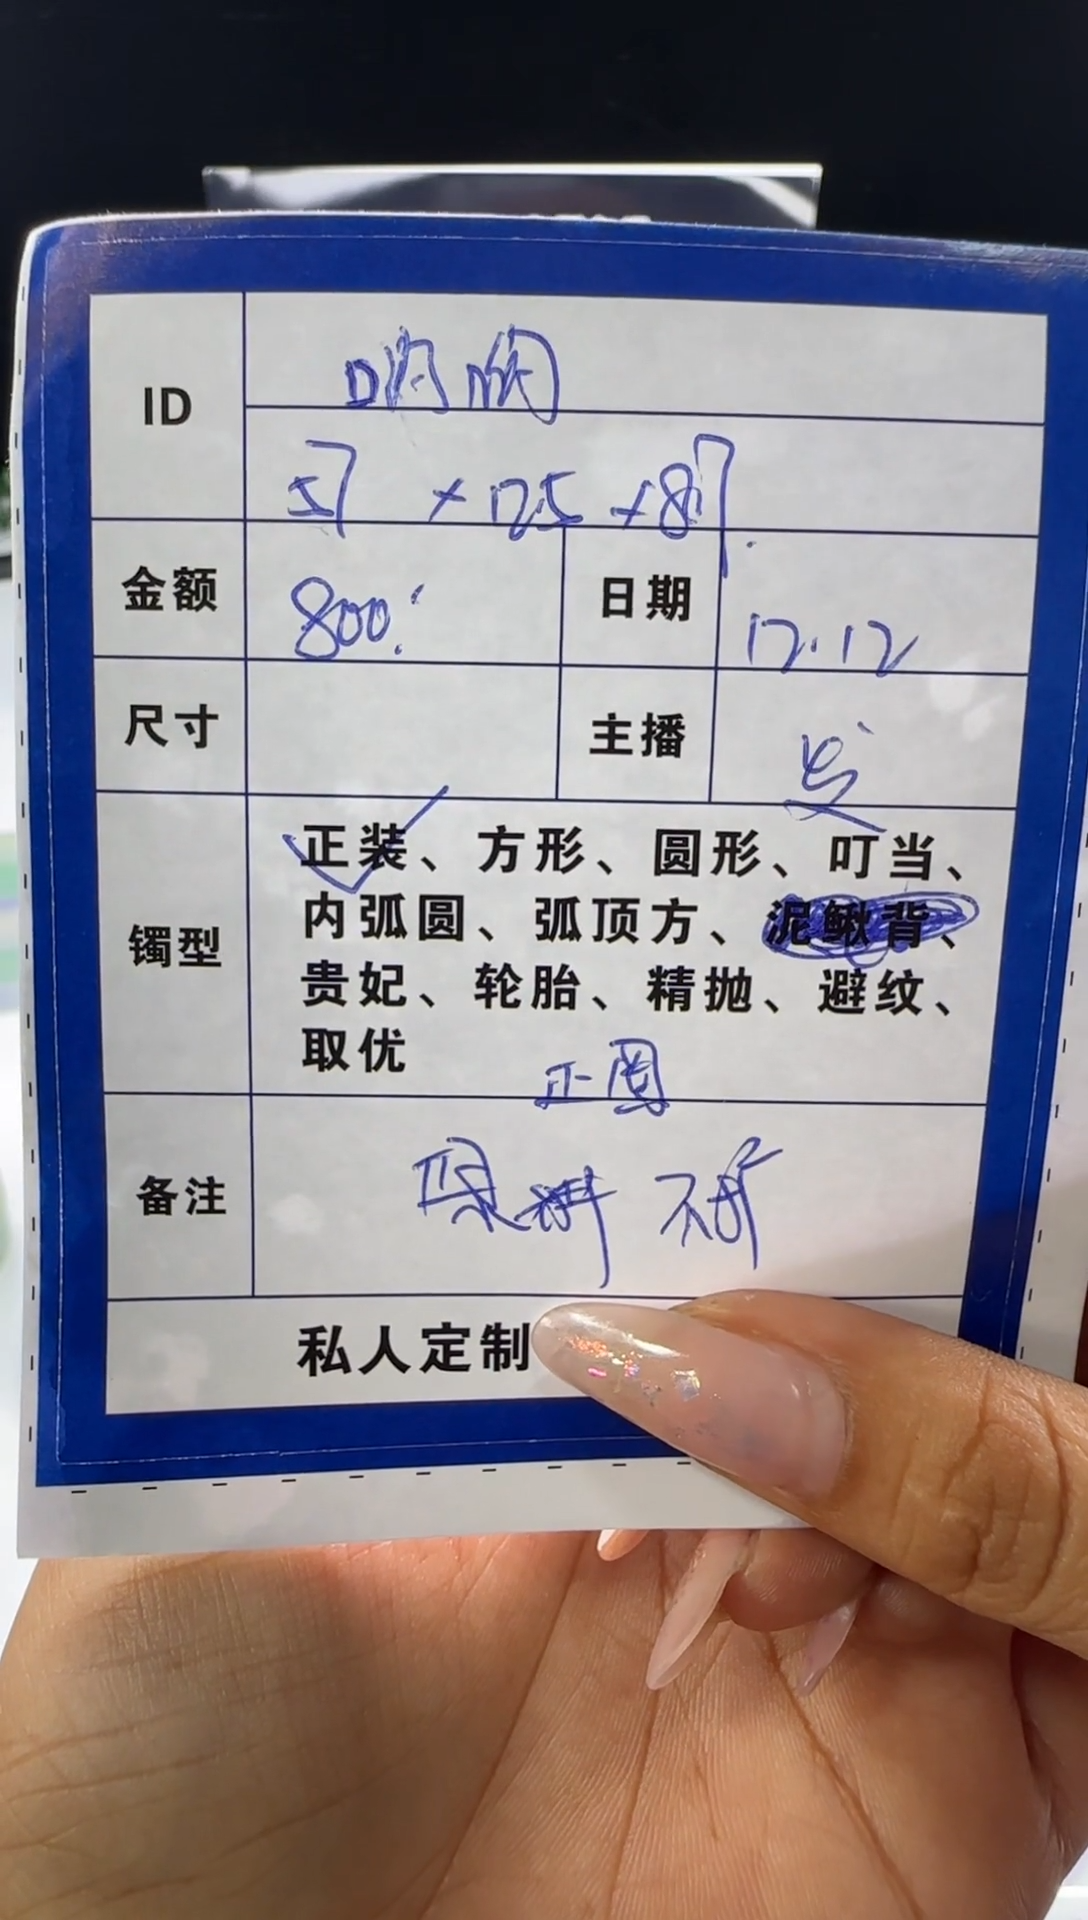 ID
57 × 125 × 8.7
金额 800 日期 12.12
尺寸 主播
正装、方形、圆形、叮当、
内弧圆、弧顶方、泥鳅背、
镯型
贵妃、轮胎、精抛、避纹、
取优
正圆
备注
私人定制